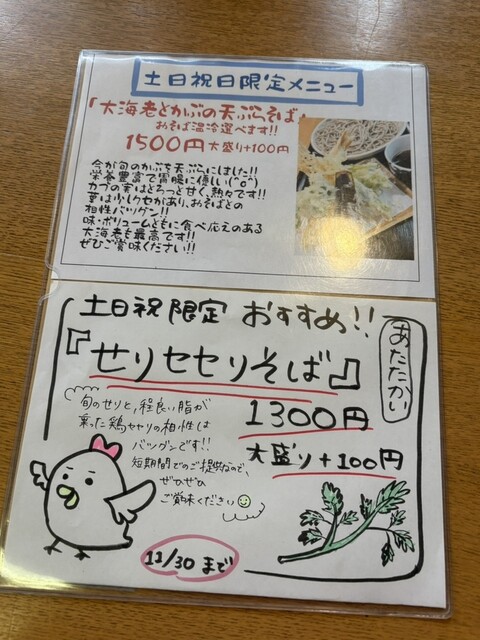 土日祝日限定メニュー
「大海老とかぶの天ぷらそば」
おそば温冷選べます!!
1500円 大盛り+100円
今が旬のかぶを天ぷらにしました!!
栄養豊富で胃腸に優しい(^o^)
カブの実はとろっと甘く、熱々です!!
葉は少しクセがあり、おそばとの
相性バツグン!!
味・ボリュームともに食べ応えのある
大海老も最高です!!
ぜひご賞味ください!!
土日祝限定 おすすめ!!
あたたかい
『せりセセリそば』
1300円
大盛り+100円
旬のせりと、程良い脂が
乗った鶏セセリの相性は
バツグンです!!
短期間でのご提供なので、
ぜひぜひ
ご賞味ください
11/30まで